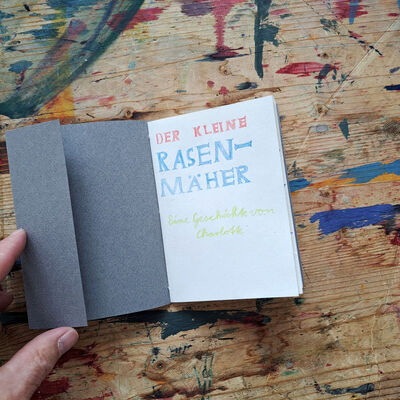 DER KLEINE
RASEN-
MÄHER
Eine Geschichte von
Charlotte